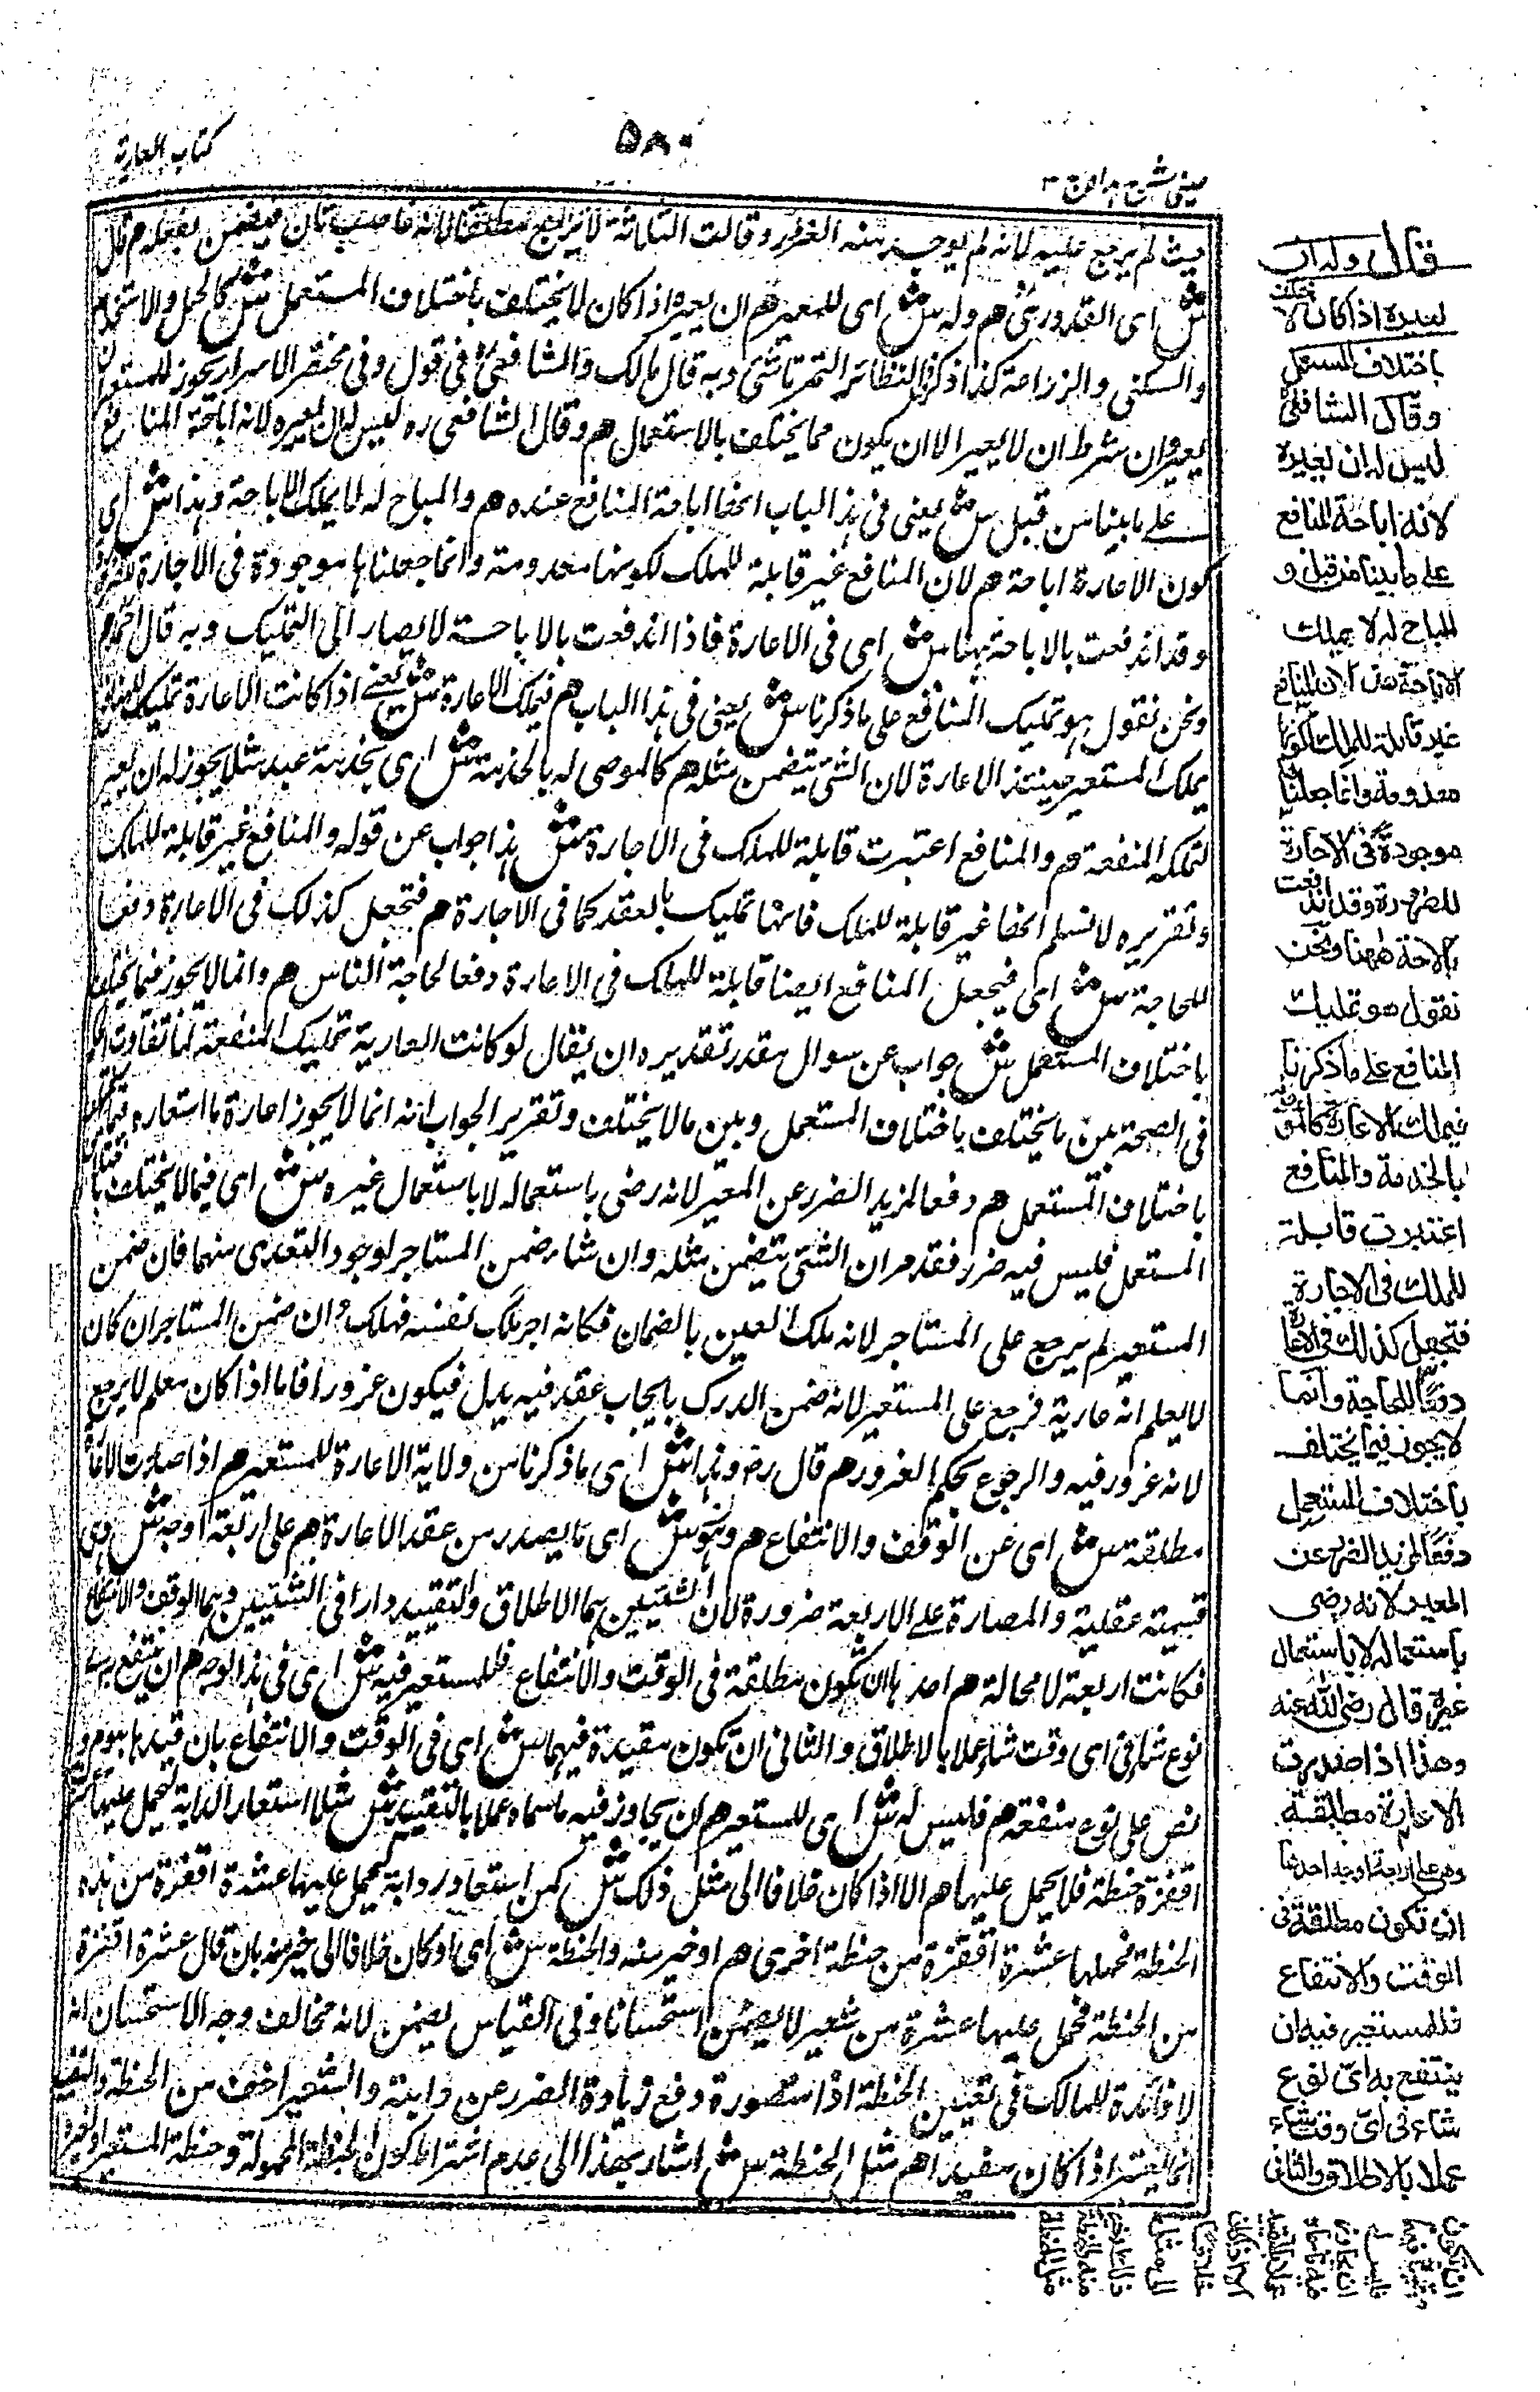 كتاب العارية
۵۸۰
عينى شرح هداية ج ٣
حيث لم يرجع عليه لانه لم يوجد منه الغرور وقالت الثلاثة لا يرجع مطلقا لانه غاصب ثان فيضمن بفعله م قال
ش اى القدورىؒ هم وله ش اى للمعير هم ان يعيره اذا كان لا يختلف باختلاف المستعمل ش كالحمل والاستخدام
والسكنى والزراعة كذا ذكره النظائر التمرتاشى وبه قال مالك والشافعىؒ فى قول وفى مختصر الاسرار يجوز للمستعير ان
يعير وان شرط ان لا يعير الا ان يكون مما يختلف بالاستعمال هم وقال الشافعى ره ليس له ان يعيره لانه اباحة المنافع
على ما بينا من قبل ش يعنى فى هذا الباب انها اباحة المنافع عنده هم والمباح له لا يملك الاباحة وهذا ش اى
كون الاعارة اباحة هم لان المنافع غير قابلة للملك لكونها معدومة وانما جعلناها موجودة فى الاجارة للضرورة
وقد اندفعت بالاباحة ههنا ش اى فى الاعارة فاذا اندفعت بالاباحة لا يصار الى التمليك وبه قال احمد هم
ونحن نقول هو تمليك المنافع على ما ذكرنا ش يعنى فى هذا الباب هم فيملك الاعارة ش يعنى اذا كانت الاعارة تمليك المنافع
يملك المستعير حينئذ الاعارة لان الشئ يتضمن مثله هم كالموصى له بالخدمة ش اى بخدمة عبد مثلا يجوز له ان يعير
لتملكه المنفعة هم والمنافع اعتبرت قابلة للملك فى الاجارة ش هذا جواب عن قوله والمنافع غير قابلة للملك
وتقريره لا نسلم انها غير قابلة للملك فانها تمليك بالعقد كما فى الاجارة هم فتجعل كذلك فى الاعارة دفعا
للحاجة ش اى فيجعل المنافع ايضا قابلة للملك فى الاعارة دفعا لحاجة الناس هم وانما لا يجوز فيما يختلف
باختلاف المستعمل ش جواب عن سوال مقدر تقديره ان يقال لو كانت العارية تمليك المنفعة لما تفاوت الحكم
فى الصحة بين ما يختلف باختلاف المستعمل وبين ما لا يختلف وتقرير الجواب انه انما لا يجوز اعارة ما استعاره فيما يختلف
باختلاف المستعمل هم دفعا لمزيد الضرر عن المعير لانه رضى باستعماله لا باستعمال غيره ش اى فيما لا يختلف باختلاف
المستعمل فليس فيه ضرر فقد مر ان الشئ يتضمن مثله وان شاء ضمن المستاجر لوجود التعدى منهما فان ضمن
المستعير لم يرجع على المستاجر لانه ملك العين بالضمان فكانه اجر ملك نفسه فهلك وان ضمن المستاجر ان كان
لا يعلم انه عارية فرجع على المستعير لانه ضمن الدرك بايجاب عقد فيه بدل فيكون غرورا فاما اذا كان معلم لا يرجع
لانه غرور فيه والرجوع بحكم الغرور هم قال رض وهذا ش اى ما ذكرنا من ولاية الاعارة للمستعير هم اذا صدرت الاعارة
مطلقة ش اى عن الوقت والانتفاع هم وهو ش اى ما يصدر من عقد الاعارة هم على اربعة اوجه ش وهى
قسمة عقلية والمصارة على الاربعة ضرورة لان الشيئين هما الاطلاق والتقييد دارا فى الشيئين وهما الوقت والانتفاع
فكانت اربعة لا محالة هم احدها ان تكون مطلقة فى الوقت والانتفاع فللمستعير فيه ش اى فى هذا الوجه هم ان ينتفع به اى
نوع شاء فى اى وقت شاء عملا بالاطلاق والثانى ان تكون مقيدة فيهما ش اى فى الوقت والانتفاع بان قيدها بيوم و
نص على نوع منفعة هم فليس له ش اى للمستعير هم ان يجاوز فيه ما سماه عملا بالتقييد ش مثلا استعار الدابة ليحمل عليها عشرة
اقفزة حنطة فلا يحمل عليها هم الا اذا كان خلافا الى مثل ذلك ش كمن استعار دابة ليحمل عليها عشرة اقفزة من هذه
الحنطة فحملها عشرة اقفزة من حنطة اخرى هم او خير منه والحنطة ش اى او كان خلافا الى خير منه بان قال عشرة اقفزة
من الحنطة فحمل عليها عشرة من شعير لا يضمن استحسانا وفى القياس يضمن لانه مخالف وجه الاستحسان انه
لا فائدة للمالك فى تعيين الحنطة اذا مقصوره دفع زيادة الضرر عن دابته والشعير اخف من الحنطة والتقييد
انما يعتبر اذا كان مفيدا هم مثل الحنطة ش اشار بهذا الى عدم اشتراط كون الحنطة المحمولة وحنطة المستعير او غيره
قال وله ان
يعيره اذا كان لا يختلف
باختلاف المستعمل
وقال الشافعىؒ
ليس له ان يعيره
لانه اباحة المنافع
على ما بينا من قبل و
المباح له لا يملك
الاباحة هذا لان المنافع
غير قابلة للملك لكونها
معدومة وانما جعلناها
موجودة فى الاجارة
للضرورة وقد اندفعت
بالاباحة ههنا ونحن
نقول هو تمليك
المنافع على ما ذكرنا
فيملك الاعارة كالموصى له
بالخدمة والمنافع
اعتبرت قابلة
للملك فى الاجارة
فتجعل كذلك فى الاعارة
دفعًا للحاجة وانما
لا يجوز فيما يختلف
باختلاف المستعمل
دفعًا لمزيد الضرر عن
المعير لانه رضى
باستعماله لا باستعمال
غيره قال رضى الله عنه
وهذا اذا صدرت
الاعارة مطلقة
وهى على اربعة اوجه احدها
ان تكون مطلقة فى
الوقت والانتفاع
فللمستعير فيه ان
ينتفع به اىّ نوع
شاء فى اىّ وقت شاء
عملا بالاطلاق والثانى
ان تكون
مقيدة فيهما
فليس له
ان يجاوز
فيه ما سماه
عملا بالتقييد
الا اذا كان
خلافًا
الى مثل
ذلك او خير
منه والحنطة
مثل الحنطة